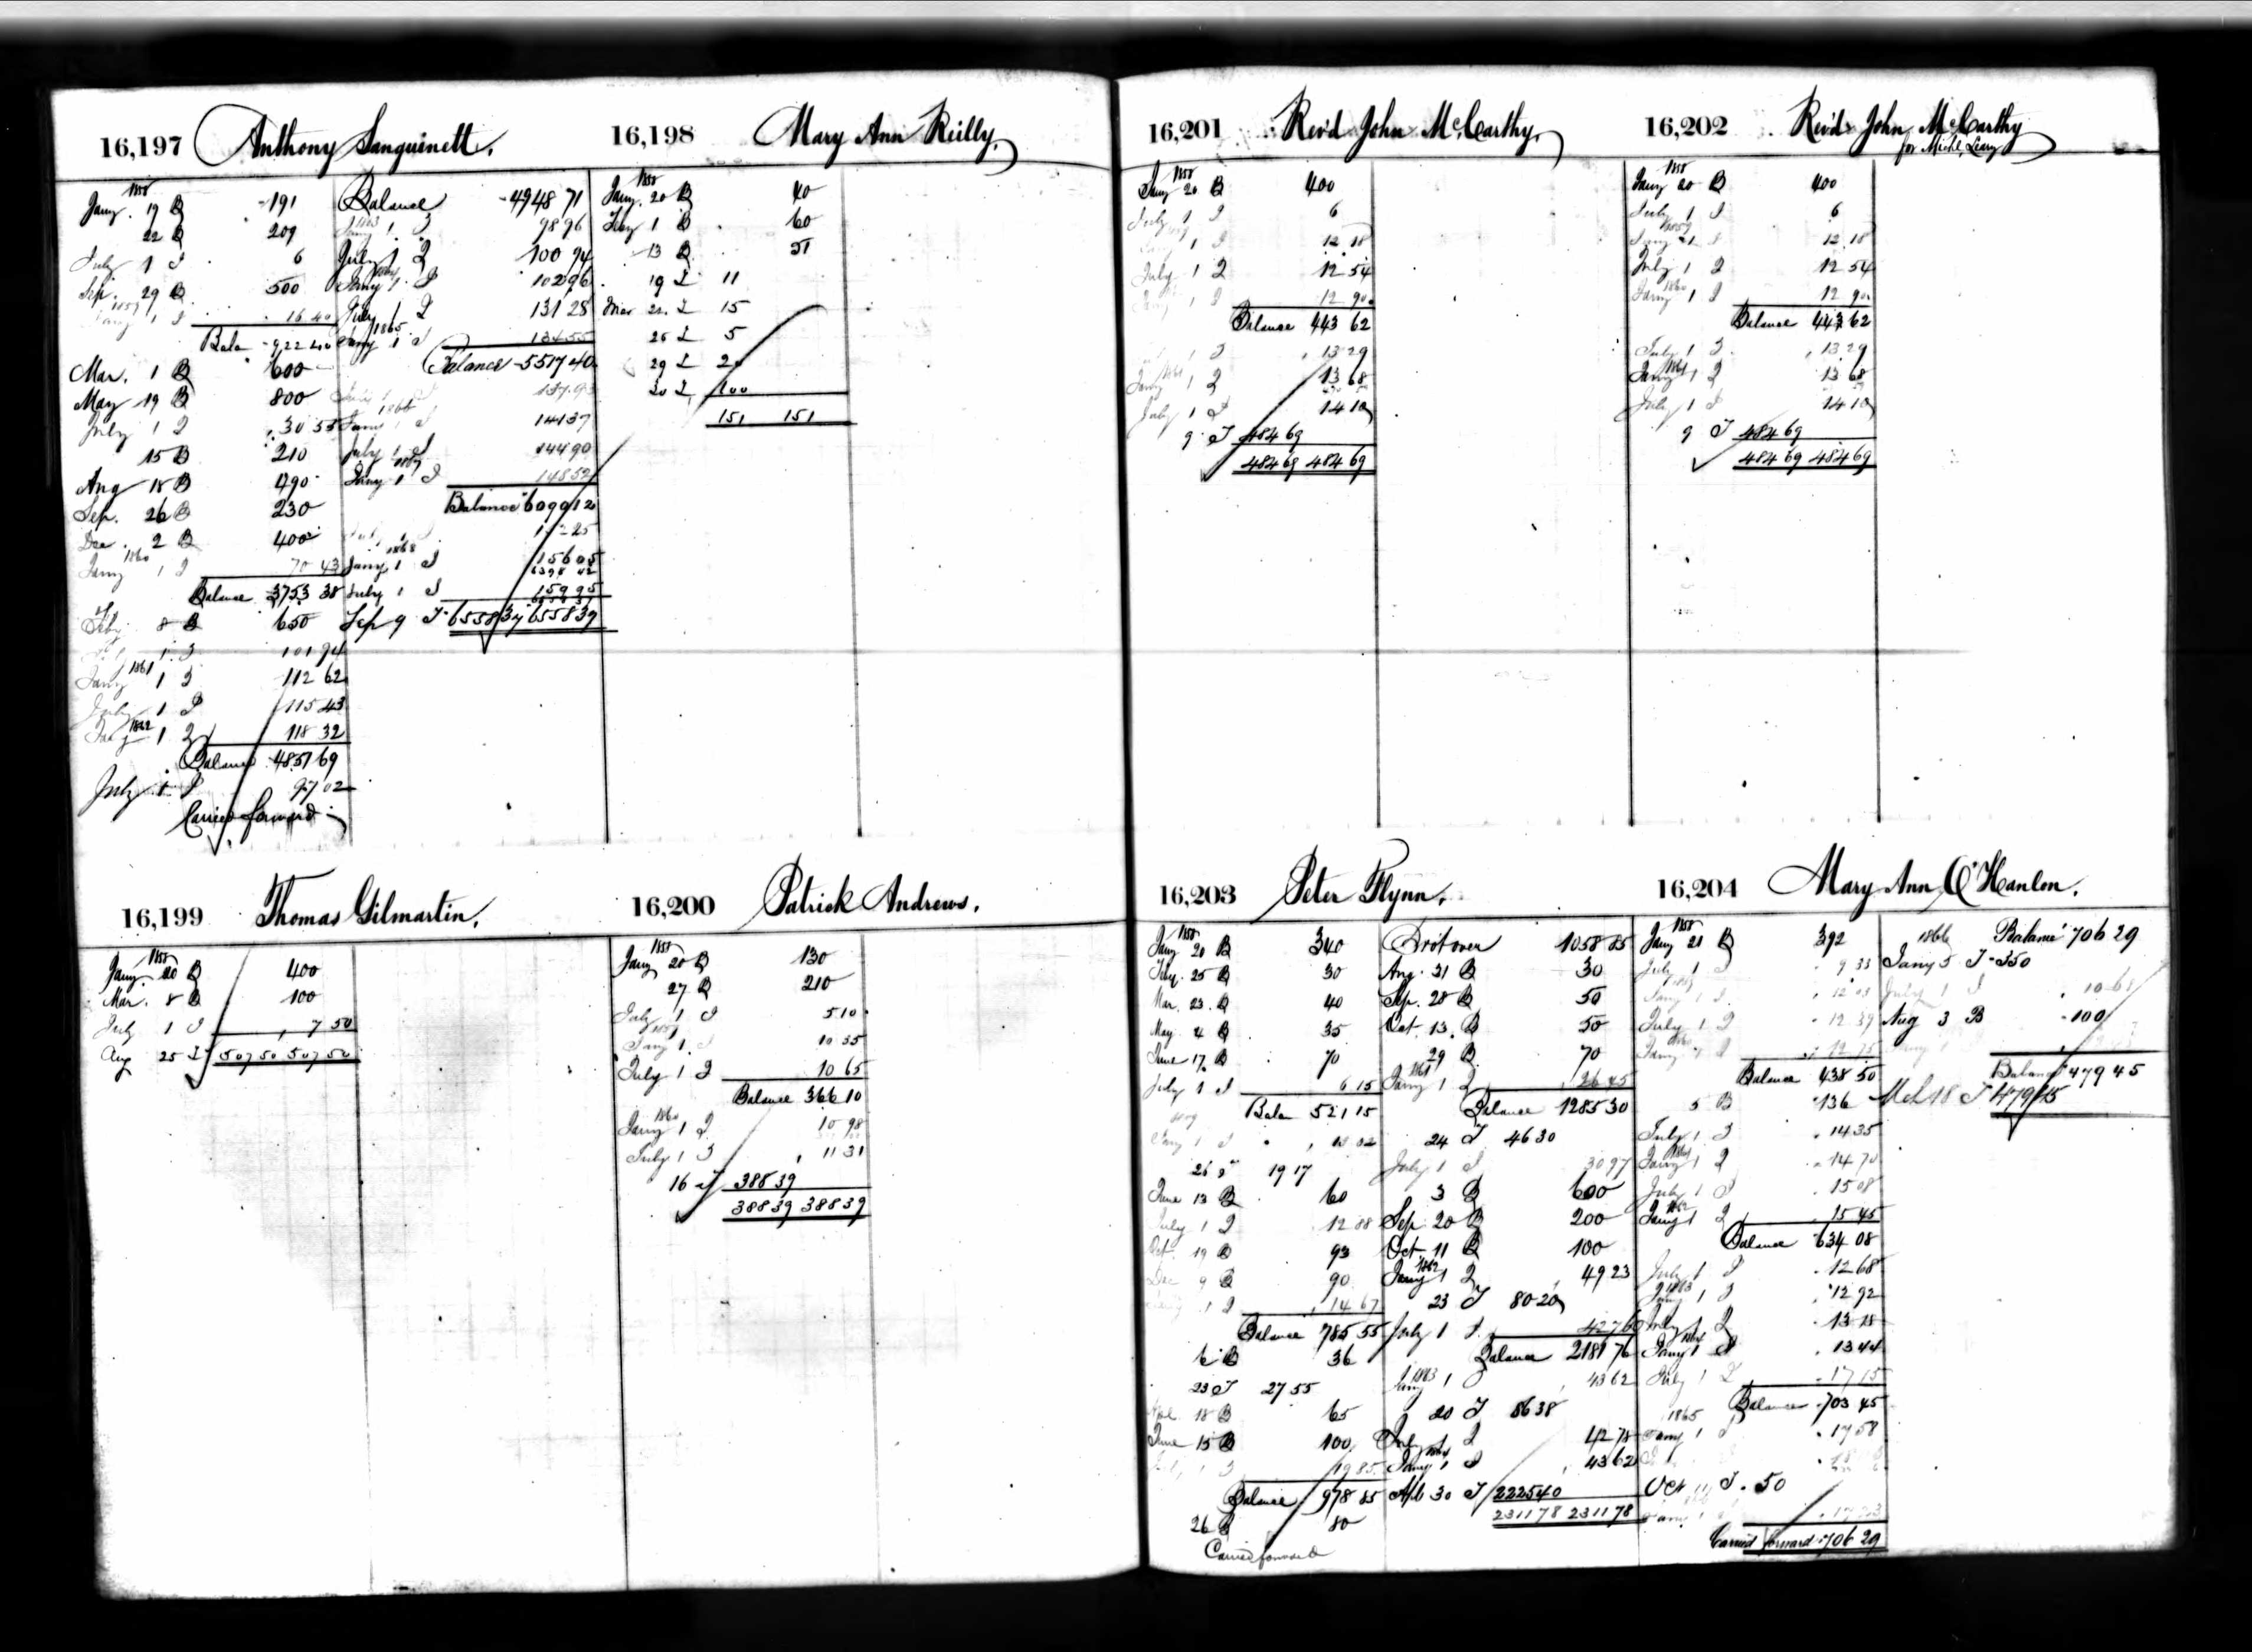 16,197 Anthony Sanguinett.
1858
Jany. 19 B 191
22 B 209
July 1 I 6
Sep. 29 B 500
1859
Jany 1 I 16 40
Bala 922 40
Mar. 1 B 600
May 19 B 800
July 1 I 30 55
15 B 210
Aug 18 B 490
Sep. 26 B 230
Dec. 2 B 400
1860
Jany 1 I 70 43
Balance 3753 38
Feby 8 B 650
1 I 101 94
1861
Jany 1 I 112 62
July 1 I 115 43
1862
Jany 1 I 118 32
Balance 4851 69
July 1 I 97 02
Carried forward
Balance 4948 71
1863
Jany 1 I 98 96
July 1 I 100 94
1864
Jany 1 I 102 96
July 1 I 131 28
1865
Jany 1 I 134 55
Balance 5517 40
July 1 I 137 93
1866
Jany 1 I 141 37
July 1 I 144 90
1867
Jany 1 I 148 52
Balance 6090 12
July 1 I
1868
Jany 1 I 156 05
6398 42
July 1 I 159 95
Sep 9 I 6558 37 6558 37
16,198 Mary Ann Reilly.
1858
Jany. 20 B 40
Feby 1 B 60
13 B 51
19 I 11
Mar 22 I 15
26 I 5
29 I 20
30 I 100
151 151
16,199 Thomas Gilmartin.
1858
Jany. 20 B 400
Mar. 8 B 100
July 1 I 7 50
Aug 25 I 507 50 507 50
16,200 Patrick Andrews.
1858
Jany 20 B 130
27 B 210
July 1 I 5 10
1859
Jany 1 I 10 35
July 1 I 10 65
Balance 366 10
1860
Jany 1 I 10 98
July 1 I 11 31
16 I 388 39
388 39 388 39
16,201 Rev'd John McCarthy.
1858
Jany 20 B 400
July 1 I 6
1859
Jany 1 I 12 18
July 1 I 12 54
Jany 1 I 12 90
Balance 443 62
1 I 13 29
1861
Jany 1 I 13 68
July 1 I 14 10
9 I 484 69
484 69 484 69
16,202 Rev'd John McCarthy
for Michl. Leary
1858
Jany 20 B 400
July 1 I 6
1859
Jany 1 I 12 18
July 1 I 12 54
1860
Jany 1 I 12 90
Balance 443 62
July 1 I 13 29
1861
Jany 1 I 13 68
July 1 I 14 10
9 I 484 69
484 69 484 69
16,203 Peter Flynn.
1858
Jany 20 B 340
25 B 30
Mar. 23. B 40
May 4 B 35
June 17. B 70
July 1 I 6 15
Bala 521 15
1859
Jany 1 I
26 I 19 17
June 13 B 60
July 1 I 12 88
Oct. 19 B 93
Dec 9 B 90
1 I 14 67
Balance 785 55
6 B 36
23 I 27 55
Apl. 18 B 65
June 15 B 100
July 1 I 19 85
Balance 978 85
26 B 80
Carried forward
Bro't over 1058 85
Aug. 31 B 30
Sep. 28 B 50
Oct. 13. B 50
29 B 70
1861
Jany 1 I 26 45
Balance 1285 30
24 I 46 30
July 1 I 30 97
3 B 600
Sep. 20 B 200
Oct. 11 B 100
1862
Jany 1 I 49 23
23 I 80 20
July 1 I 42 76
Balance 2181 76
1863
Jany 1 I 43 62
20 I 86 38
July 1 I 42 78
1864
Jany 1 I 43 62
Apl 30 I 2225 40
2311 78 2311 78
16,204 Mary Ann O'Hanlon.
1858
Jany 21 B 392
July 1 I 9 33
1859
Jany 1 I 12 03
July 1 I 12 39
1860
Jany 1 I 12 75
Balance 438 50
5 B 136
July 1 I 14 35
1861
Jany 1 I 14 70
July 1 I 15 08
1862
Jany 1 I 15 45
Balance 634 08
July 1 I 12 68
1863
Jany 1 I 12 92
July 1 I 13 18
1864
Jany 1 I 13 44
July 1 I 17 15
Balance 703 45
1865
Jany 1 I 17 58
Oct 11 I 50
Carried forward 706 29
1866 Balance 706 29
Jany 5 I 350
July 1 I 10 68
Aug 3 B 100
Balance 479 45
Mch 18 I 479 45